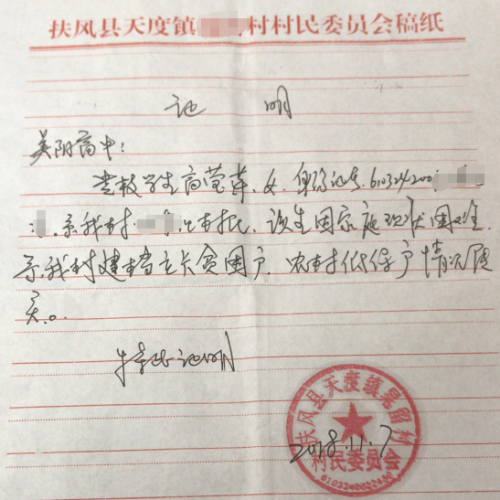 扶风县天度镇 村村民委员会稿纸
证 明
美阳高中:
贵校学生高莹萍,女,身份证号610324200
,系我村 组村民,该生因家庭现状困难,
系我村建档立卡贫困户,农村低保户情况属
实。
特此证明
扶风县天度镇 村
村民委员会
2018.11.7